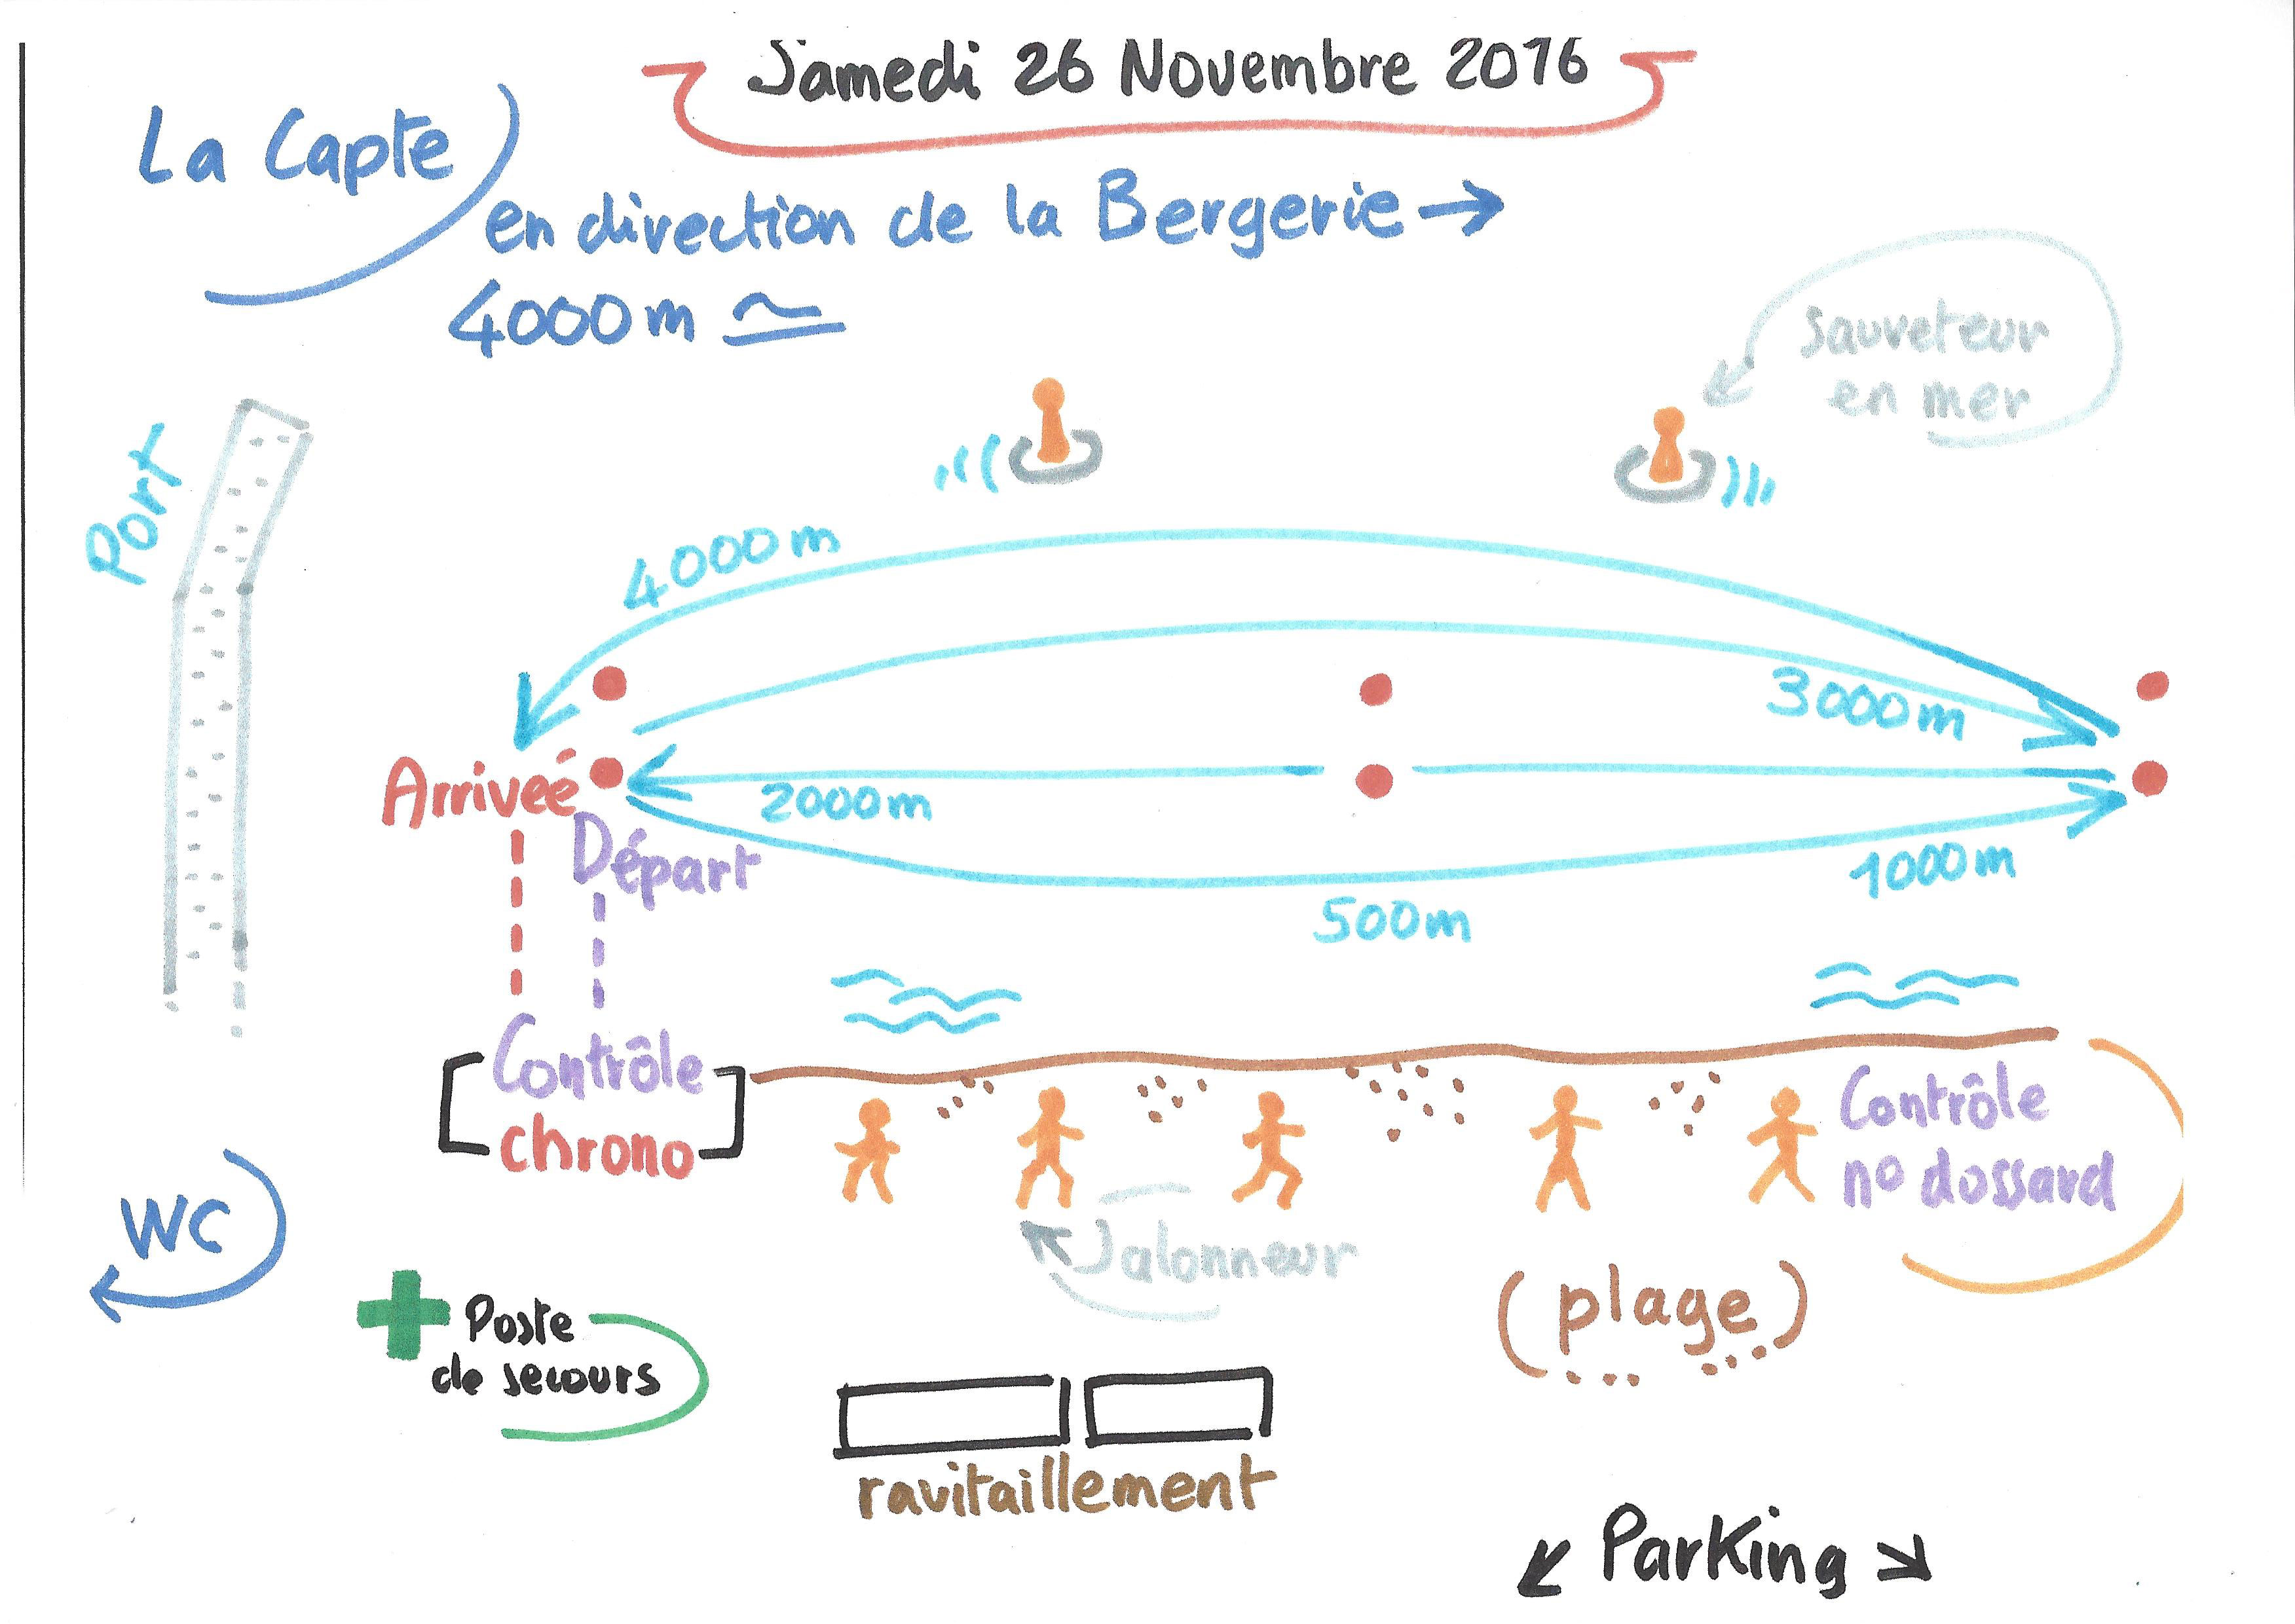 Samedi 26 Novembre 2016
La Capte
en direction de la Bergerie →
4000m ≃
Sauveteur
en mer
Port
4000m
3000m
Arriveé
2000m
Départ
1000m
500m
Contrôle
chrono
Contrôle
no dossard
WC
Jalonneur
(plage)
Poste
de secours
ravitaillement
Parking